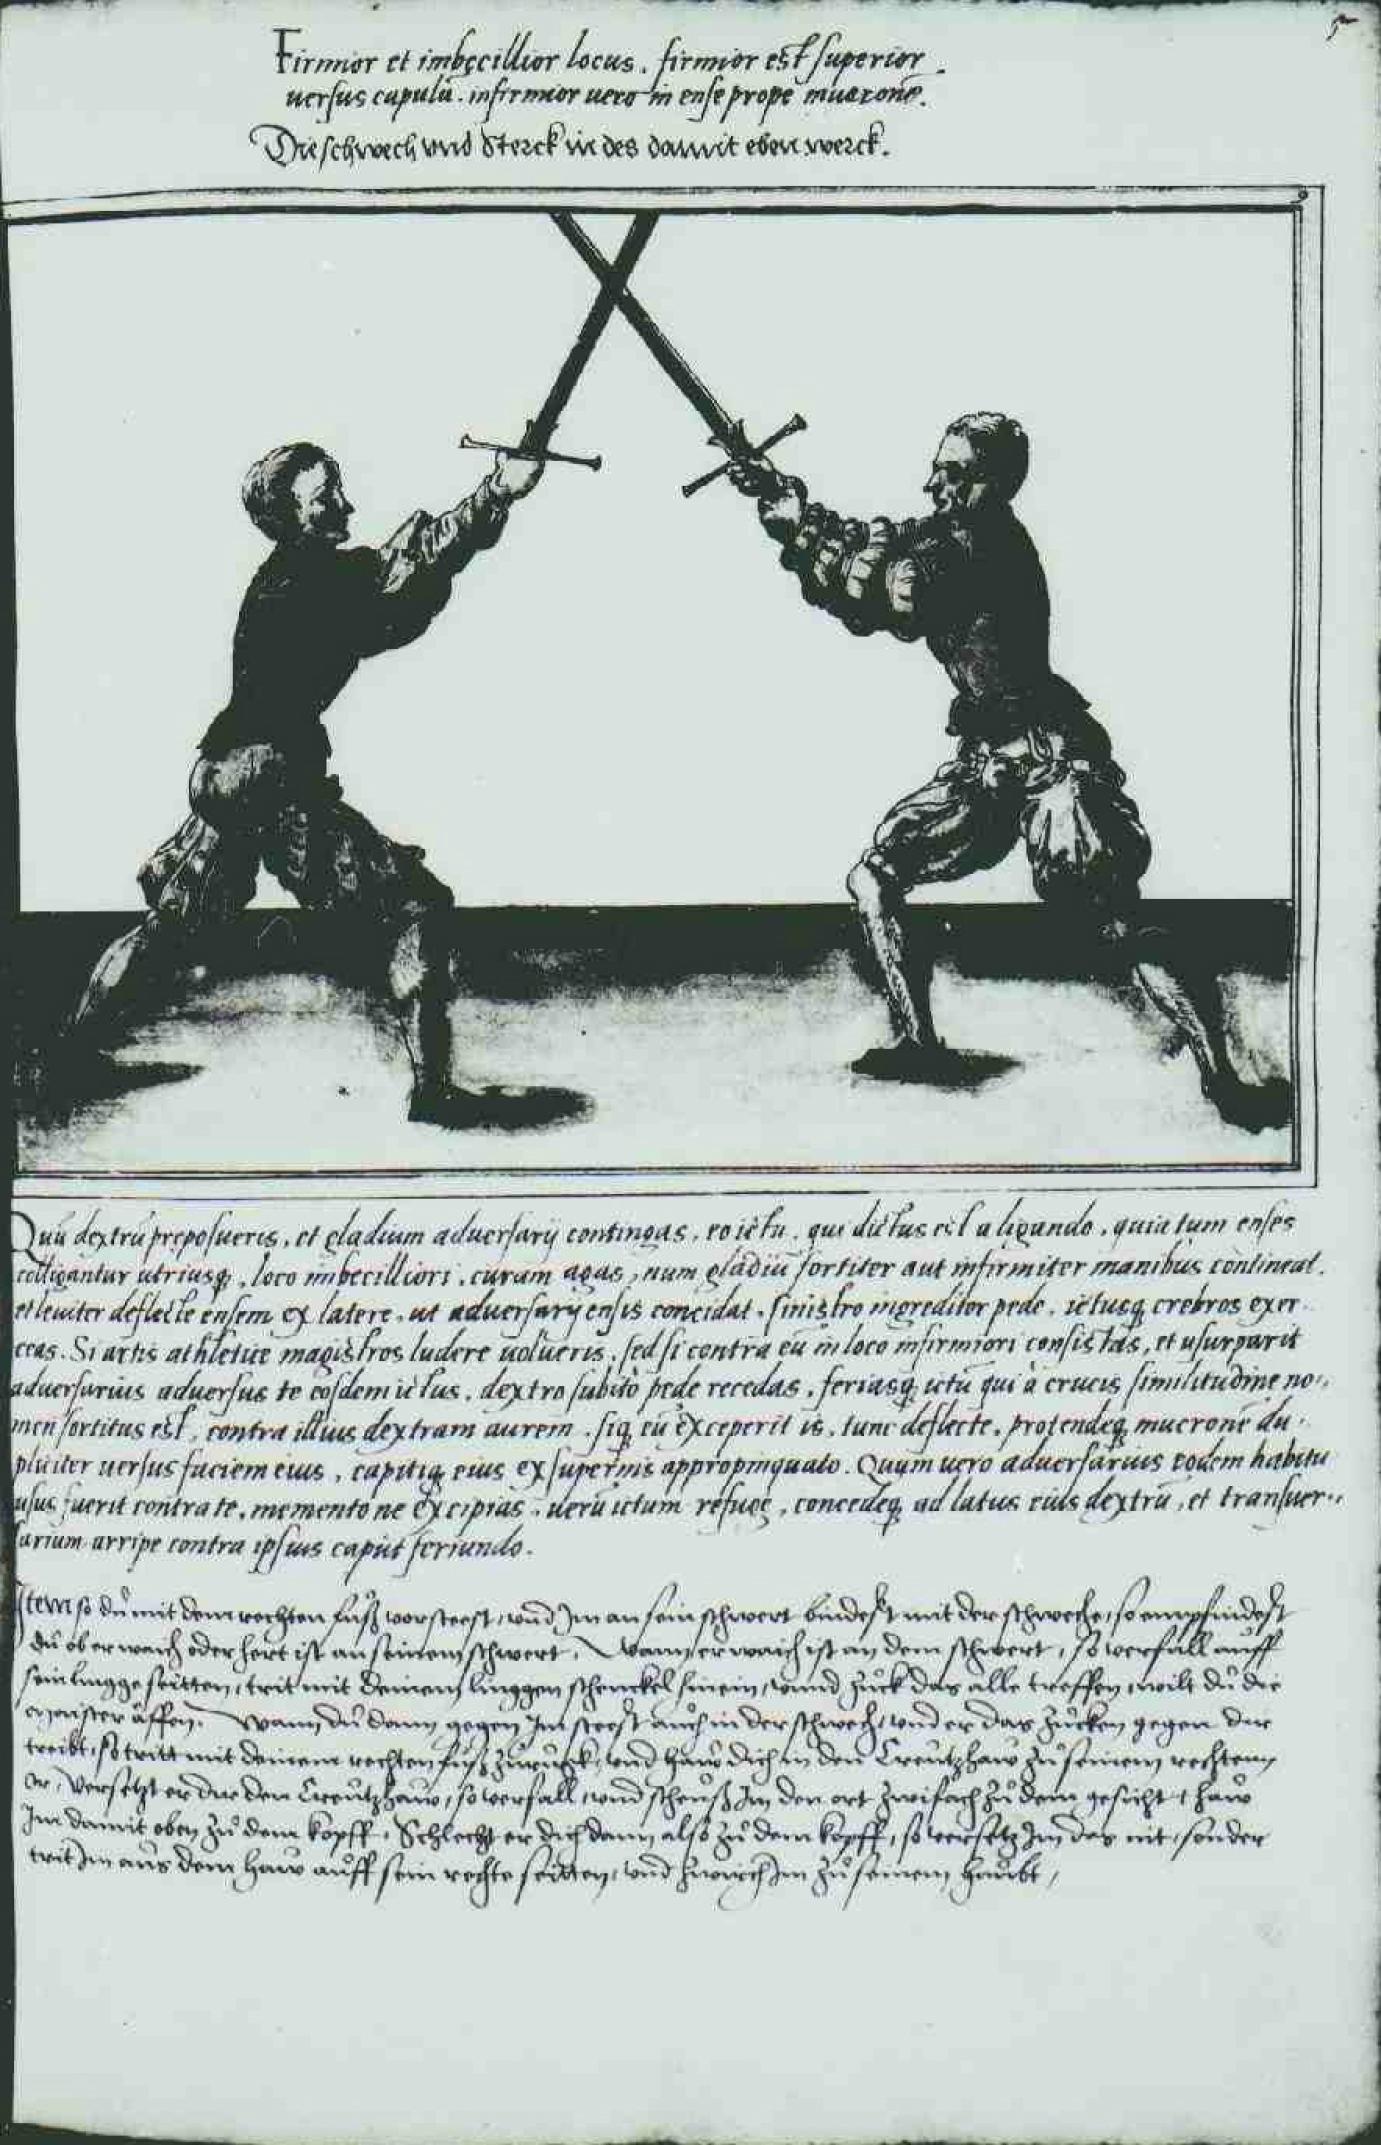 5
Firmior et imbęcillior locus. firmior est superior
uersus capulū. infirmior uero in ense prope mucronē.
Die schwech vnd Sterck in des damit eben werck.
Quū dextrū preposueris, et gladium aduersarij contingas, eo ictu, qui dictus est a ligando, quia tum enses
colligantur utriusq, loco imbecilliori, curam agas, num gladiū fortiter aut infirmiter manibus contineat.
et leuiter deflecte ensem ex latere, ut aduersarij ensis concidat, sinistro ingreditor pede, ictusq crebros exer-
ceas. Si artis athleticę magistros ludere uolueris, sed si contra eū in loco infirmiori consistas, et usurparit
aduersarius aduersus te eosdem ictus, dextro subitò pede recedas, feriasq ictū qui à crucis similitudine no-
men sortitus est, contra illius dextram aurem, siq eū exceperit is, tunc deflecte, protendeq mucronē du-
pliciter uersus faciem eius, capitiq eius ex supernis appropinquato. Quum uero aduersarius eodem habitu
usus fuerit contra te, memento ne excipias, uerū ictum refuge, concedeq ad latus eius dextrū, et transuer-
sarium arripe contra ipsius caput feriundo.
Item so dů mit dem rechten fůß vorsteest, vnd Im an sein schwert bindest mit der schweche, so empfindest
dů ob er waich oder hert ist an seinem schwert, Wann er waich ist an dem schwert, so verfall auff
sein lingge seitten, trit mit deinem linggen schenckel hinein, vnnd zuck das alle treffen, wilt dů die
maister äffen. Wann dů dann gegen Im steest auch in der schwech, vnd er das zucken gegen dir
treibt, so tritt mit deinem rechten fůß zuruck, vnd haw dich in den Creutzhaw zů seinem rechten
or, Versetzt er dir den Creutzhaw, so verfall, vnd scheuß Im den ort zwifach zů dem gesicht, haw
Im damit oben zů dem kopff, Schlecht er dich dann also zů dem kopff, so versetz Im das nit, sonder
trit Im aus dem haw auff sein rechte seitten, vnd zwirch Im zů seinem haubt,